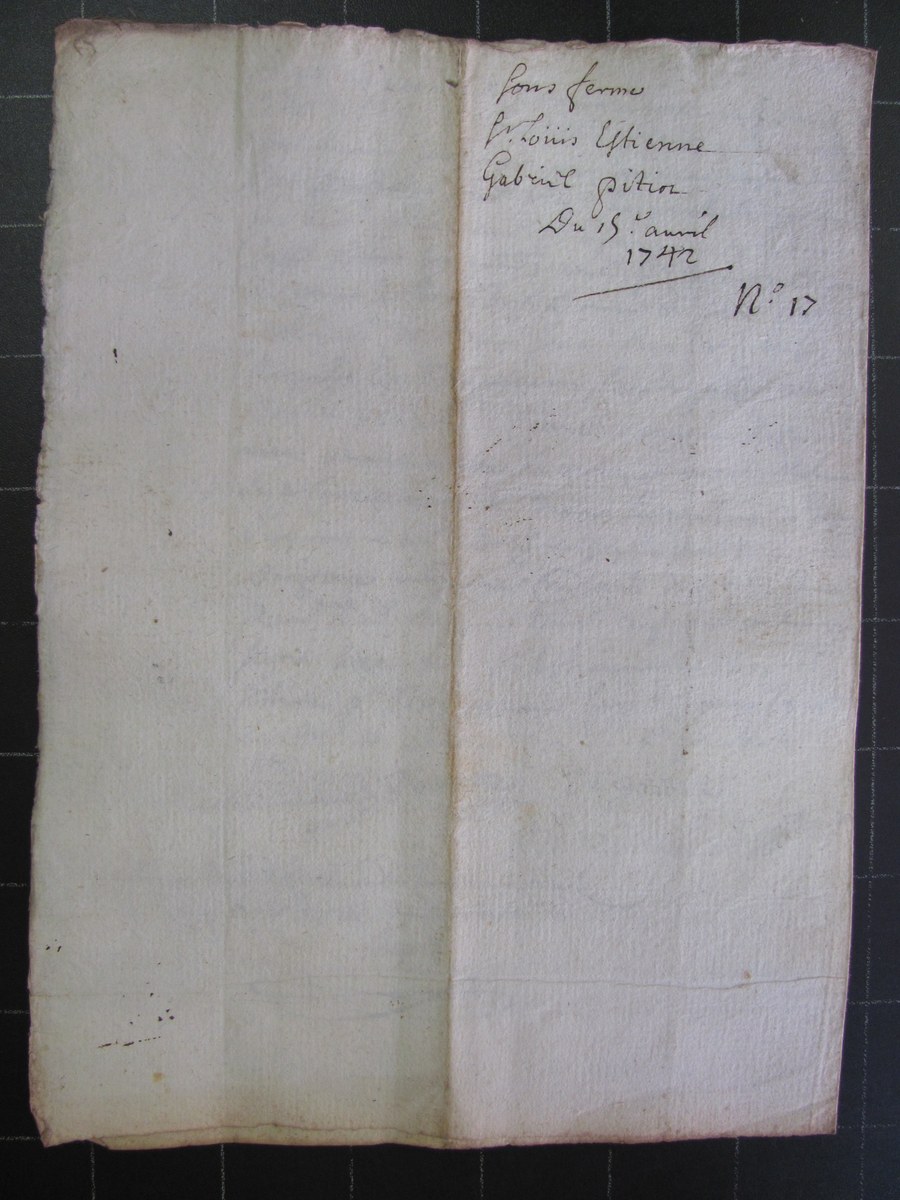 Sous ferme
Sr. Louis Estienne
Gabriel pition
Du 15.e auril
1742
No. 17